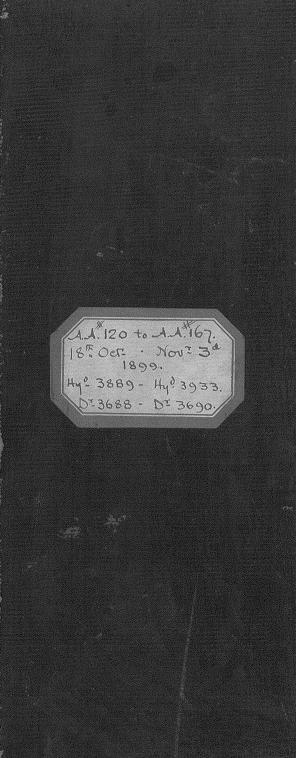 A.A.#120 to A.A.#167.
18th Octr · Novr 3d
1899.
Hyd 3889 - Hyd 3933.
Dr 3688 - Dr 3690.